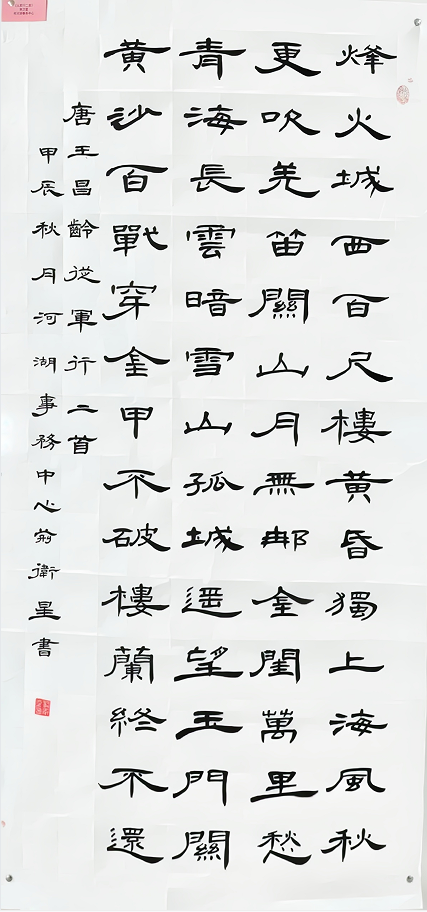 烽火城西百尺樓黄昏獨上海風秋
更吹羌笛關山月無那金閨萬里愁
青海長雲暗雪山孤城遥望玉門關
黄沙百戰穿金甲不破樓蘭終不還
唐王昌齡從軍行二首
甲辰秋月河湖事務中心衛星書